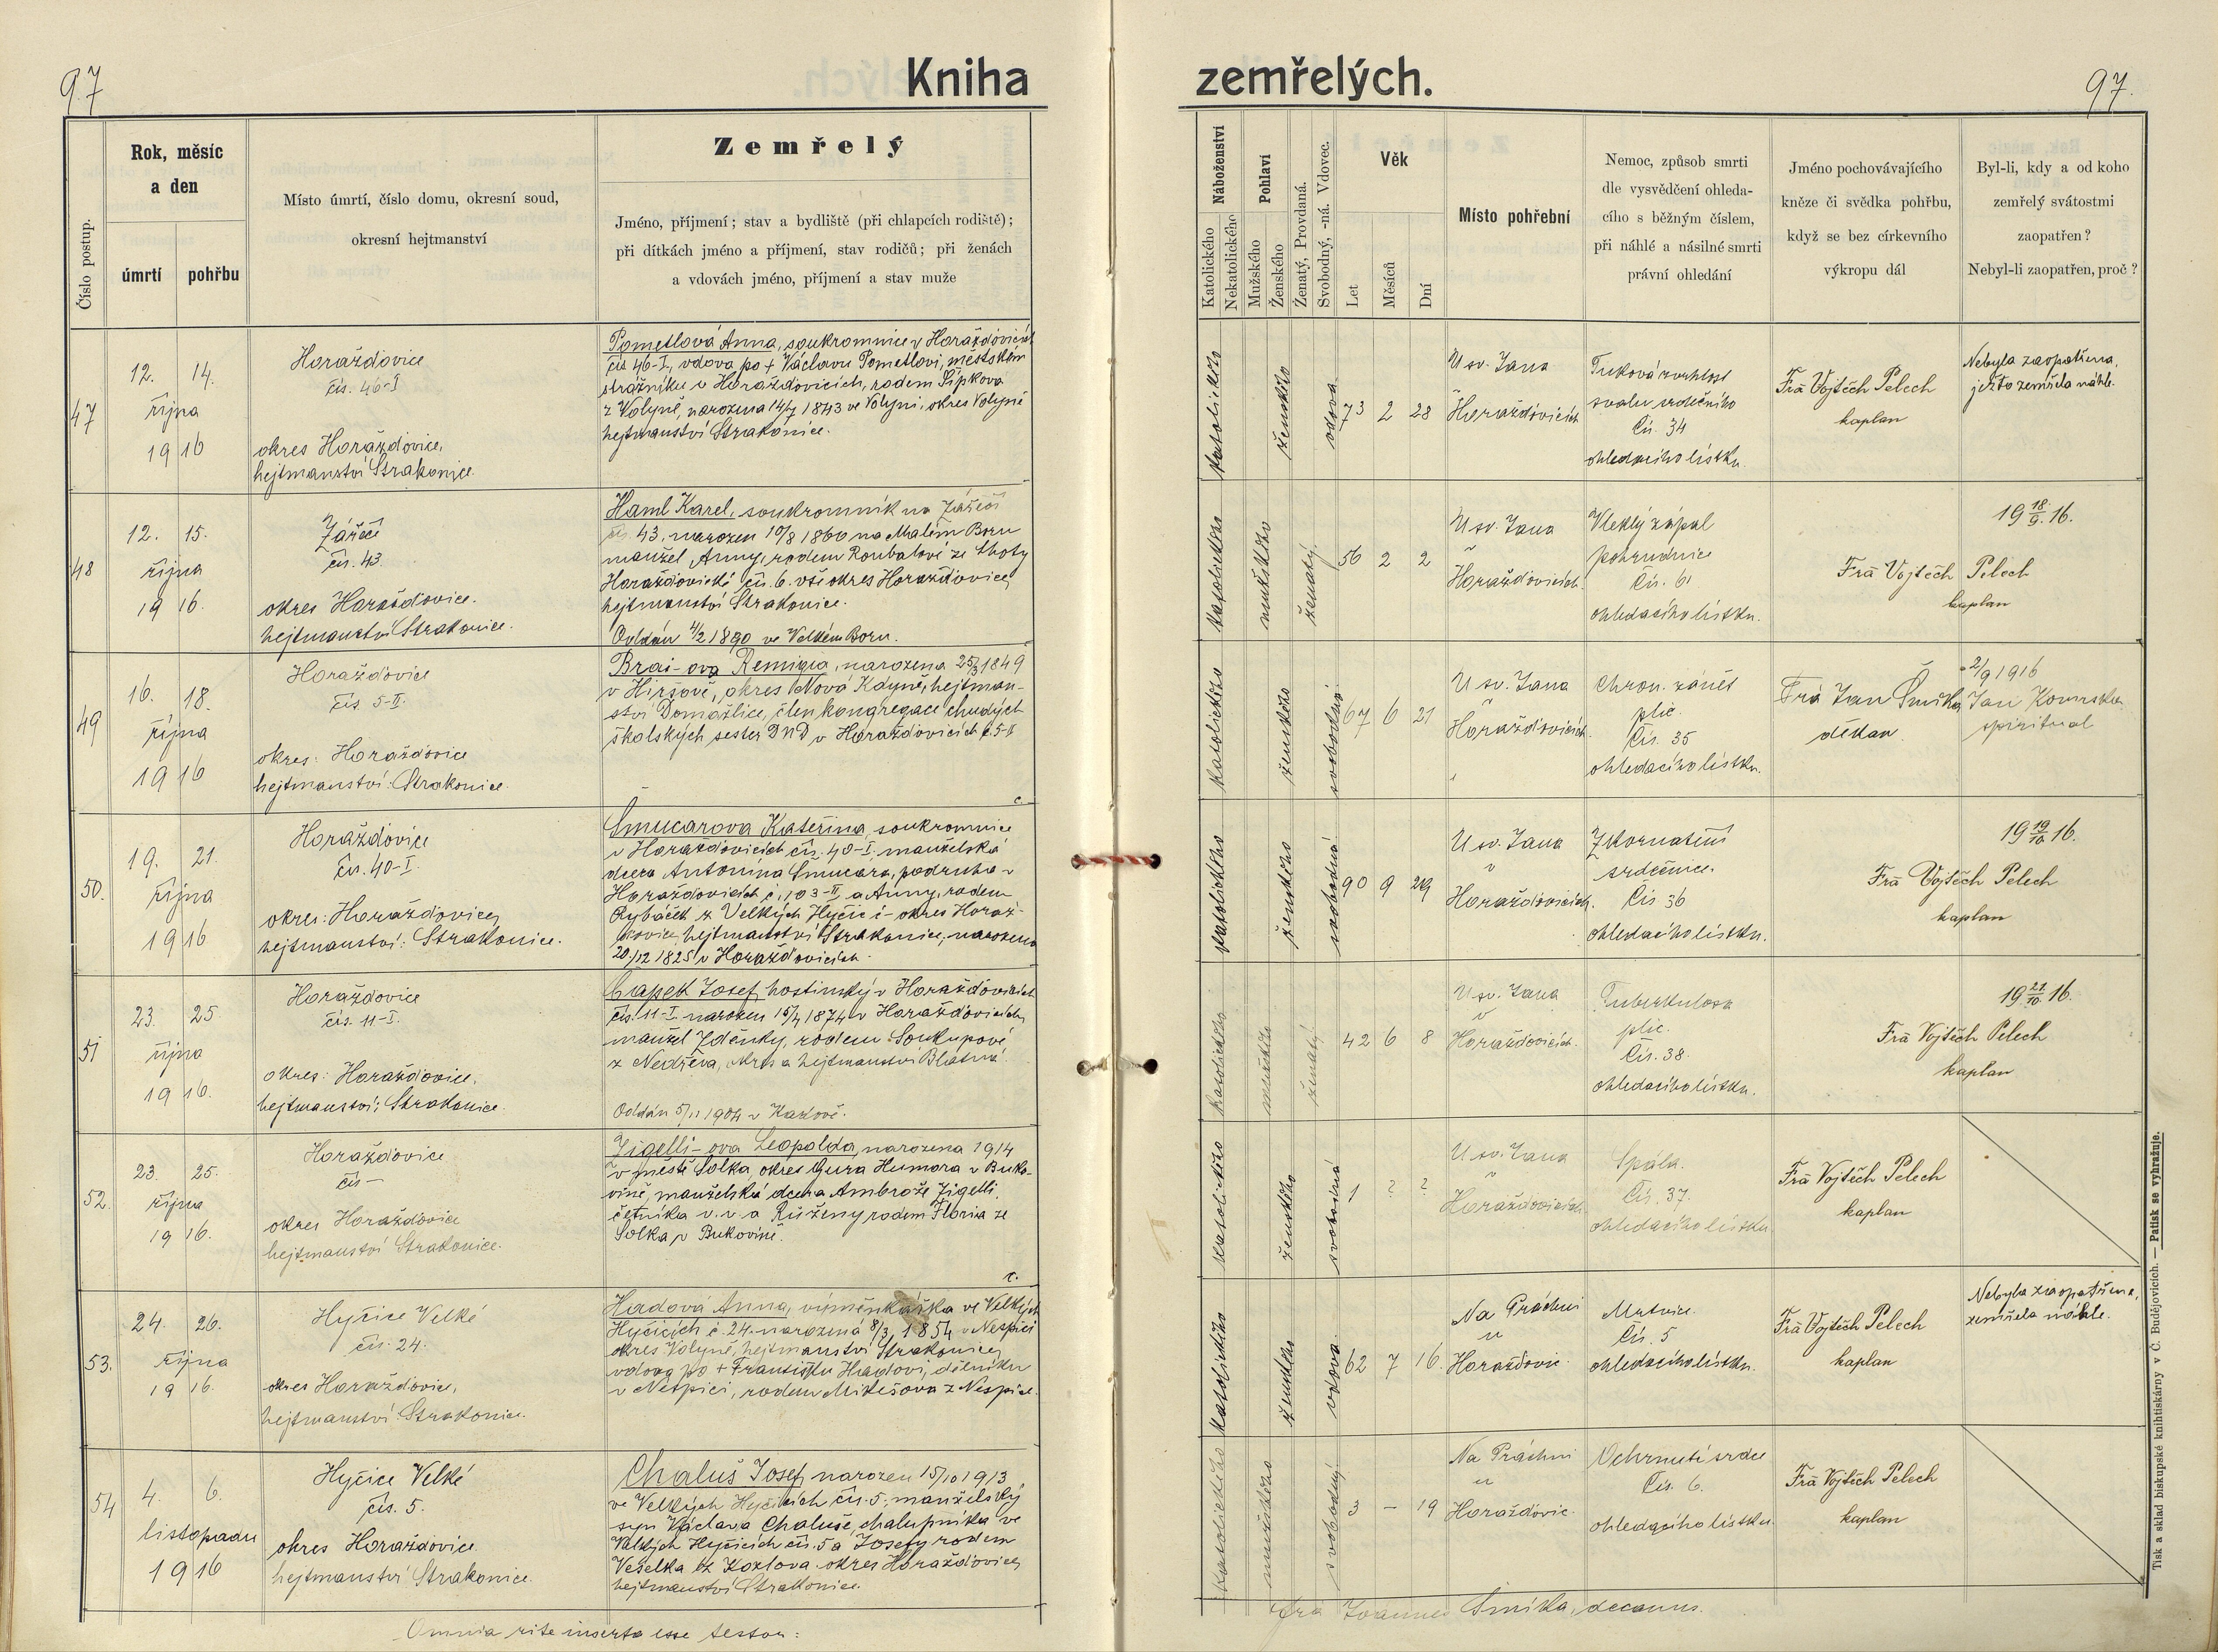 97
Kniha
zemřelých.
97.
Číslo postup.
Rok, měsíc
a den
úmrtí
pohřbu
Místo úmrtí, číslo domu, okresní soud,
okresní hejtmanství
Zemřelý
Jméno, příjmení; stav a bydliště (při chlapcích rodiště);
při dítkách jméno a příjmení, stav rodičů; při ženách
a vdovách jméno, příjmení a stav muže
Náboženství
Katolického
Nekatolického
Pohlaví
Mužského
Ženského
Ženatý, Provdaná.
Svobodný, -ná. Vdovec.
Věk
Let
Měsíců
Dní
Místo pohřební
Nemoc, způsob smrti
dle vysvědčení ohleda-
cího s běžným číslem,
při náhlé a násilné smrti
právní ohledání
Jméno pochovávajícího
kněze či svědka pohřbu,
když se bez církevního
výkropu dál
Byl-li, kdy a od koho
zemřelý svátostmi
zaopatřen?
Nebyl-li zaopatřen, proč?
47
12. 14.
října
1916
Horažďovice
čís. 46-I
okres Horažďovice,
hejtmanství Strakonice.
Pometlová Anna, soukromnice v Horažďovicích
čís 46-I, vdova po + Václavu Pometlovi, městském
strážníku v Horažďovicích, rodem Šípkova
z Volyně, narozena 14/7 1843 ve Volyni, okres Volyně
hejtmanství Strakonice.
katolického
ženského
vdova
73 2 28
U sv. Jana
v
Horažďovicích
Tuková zvrhlost
svalu srdečního
Čís. 34
ohledacího lístku.
Fra Vojtěch Pelech
kaplan
Nebyla zaopatřena,
ježto zemřela náhle.
48
12. 15.
října
1916.
Zářečí
čís. 43
okres Horažďovice.
hejtmanství Strakonice.
Haml Karel, soukromník na Zářečí
čís 43. narozen 10/8 1860 na Malém Boru
manžel Anny, rodem Roubalové ze Lhoty
Horažďovické čís. 6. vše okres Horažďovice,
hejtmanství Strakonice.
Oddán 4/2 1890 ve Velkém Boru.
katolického
mužského
ženatý.
56 2 2
U sv. Jana
v
Horažďovicích.
Vleklý zápal
pohrudnice
Čís. 61
ohledacího lístku.
Fra Vojtěch Pelech
kaplan
19 18/9. 16.
49
16. 18.
října
1916
Horažďovice
čís. 5-II.
okres: Horažďovice
hejtmanství: Strakonice.
Brai-ova Remigia, narozena 25/3 1849
v Hiršově, okres Nová Kdyně, hejtman-
ství Domažlice, člen kongregace chudých
školských sester DND v Horažďovicích č. 5-II
katolického
ženského
svobodná.
67 6 21
U sv. Jana
v
Horažďovicích.
Chron. zánět
plic.
Čís. 35
ohledacího lístku.
Fra Jan Šmitka
děkan.
2/9 1916
Jan
spirituál
50.
19. 21.
října
1916
Horažďovice
čís. 40-I.
okres: Horažďovice,
hejtmanství: Strakonice.
Šmucarova Kateřina, soukromnice
v Horažďovicích čís. 40-I. manželská
dcera Antonína Šmucara, podruha v
Horažďovicích č. 103-II a Anny, rodem
Rybáček z Velkých Hyčic č - okres Horaž-
ďovice, hejtmanství Strakonice, narozena
20/12 1825 v Horažďovicích.
katolického
ženského
svobodná
90 9 29
U sv. Jana
v
Horažďovicích.
Zkornatění
srdečnice.
Čís 36
ohledacího lístku.
Fra Vojtěch Pelech
kaplan
19 19/10 16.
51
23. 25
října
1916.
Horažďovice
čís. 11-I.
okres: Horažďovice.
hejtmanství: Strakonice.
Čapek Josef, hostinský v Horažďovicích
čís. 11-I. narozen 15/4 1874 v Horažďovicích,
manžel Zdeňky, rodem Soukupové
z Nedřeva, okres a hejtmanství Blatná.
Oddán 5/11 1904 v Kadově.
katolického
mužského
ženatý.
42 6 8
U sv. Jana
v
Horažďovicích.
Tuberkulosa
plic.
Čís. 38.
ohledacího lístku.
Fra Vojtěch Pelech
kaplan
19 21/10 16.
52.
23. 25.
října
1916.
Horažďovice
čís -
okres Horažďovice
hejtmanství Strakonice.
Zigelli-ova Leopolda, narozena 1914
v městě Solka okres Gura Humora v Buko-
vině, manželská dcera Ambrože Zigelli,
četníka v. v. a Růženy rodem Floria ze
Solka v Bukovině.
katolického
ženského
svobodná
1 ? ?
U sv. Jana
v
Horažďovicích.
Spála.
Čís. 37.
ohledacího lístku
Fra Vojtěch Pelech
kaplan
53.
24. 26.
října
1916.
Hyčice Velké
čís. 24.
okres Horažďovic,
hejtmanství Strakonice.
Hadová Anna, výměnkářka ve Velkých
Hyčicích č. 24. narozená 8/3 1854 v Nespici
okres Volyně, hejtmanství Strakonice,
vdova po + Františku Hadovi, dělníku
v Nespici, rodem Mikešova z Nespic.
katolického
ženského
vdova.
62 7 16.
Na Práchni
u
Horažďovic.
Mrtvice.
Čís. 5
ohledacího lístku.
Fra Vojtěch Pelech
kaplan
Nebyla zaopatřena,
zemřela náhle.
54
4. 6.
listopadu
1916
Hyčice Velké
čís. 5.
okres Horažďovice.
hejtmanství Strakonice.
Chaluš Josef, narozen 15/10 1913
ve Velkých Hyčicích čís. 5, manželský
syn Václava Chaluše, chalupníka ve
Velkých Hyčicích čís. 5 a Josefy rodem
Veselka z Kozlova okres Horažďovice,
hejtmanství Strakonice.
katolického
mužského
svobodný
3 - 19
Na Práchni
u
Horažďovic.
Ochrnutí srdce
Čís. 6.
ohledacího lístku.
Fra Vojtěch Pelech
kaplan
Omnia rite inserta esse testor:
Fra Joannes Šmitka, decanus.
Tisk a sklad biskupské knihtiskárny v Č. Budějovicích. — Patisk se vyhražuje.